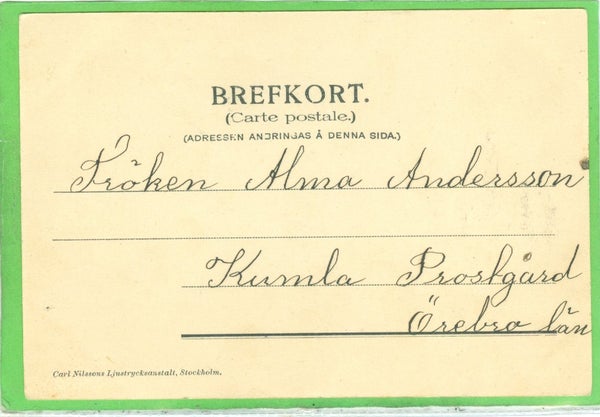 BREFKORT.
(Carte postale.)
(ADRESSEN ANDRINGAS Å DENNA SIDA.)
Fröken Alma Andersson
Kumla Prostgård
Örebro län
Carl Nilssons Ljustrycksanstalt, Stockholm.